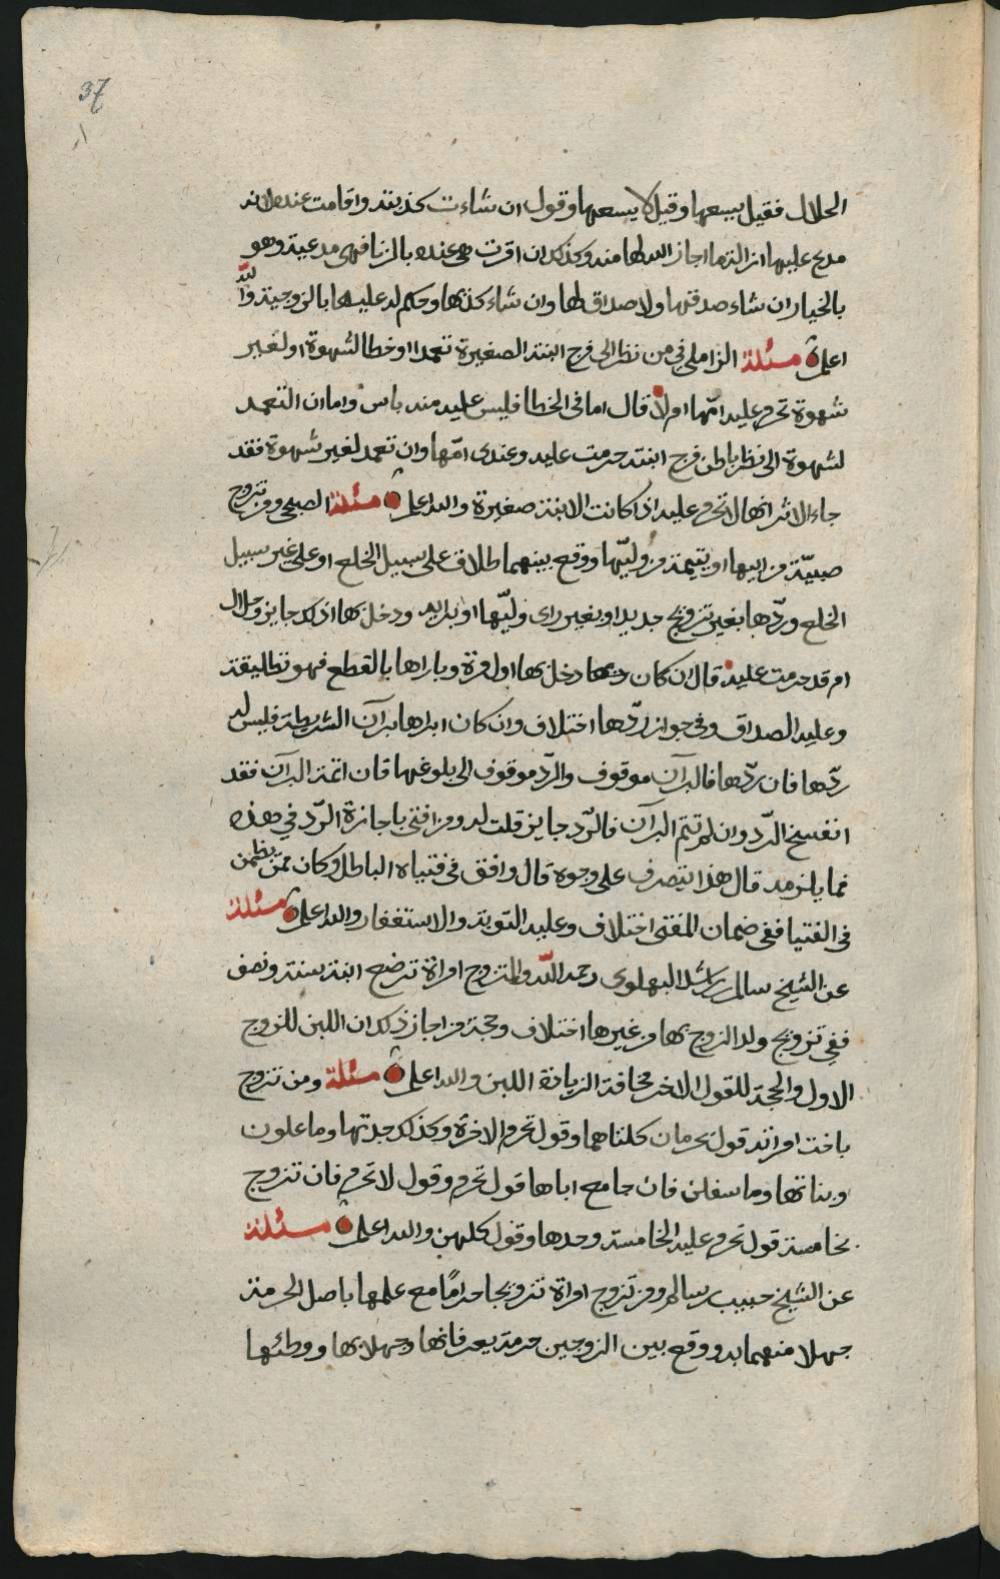 37
الحلال فقيل يسعها وقيل لا يسعها وقول ان شاءت كذبته واقامت عنده لانه
مدع عليها ازالة ما اجاز الله لها منه وكذلك ان اقرت هى عنده بالزنا فهى مدعية وهو
بالخيار ان شاء صدقها ولا صداق لها وان شاء كذبها وحكم له عليها بالزوجية والله
اعلم مسئلة الزاملي في من نظر الى فرج ابنته الصغيرة تعمدا او خطا لشهوة او لغير
شهوة تحرم عليه امّها ام لا قال اما في الخطا فليس عليه منه باس واما ان التعمد
لشهوة الى نظر باطن فرج ابنته حرمت عليه وعندى امّها وان تعمد لغير شهوة فقد
جاء الاثر انها لا تحرم عليه اذا كانت الابنة صغيرة والله اعلم مسئلة الصبحي ومن تزوج
صبيّة من ابيها او يتيمة من وليّها ووقع بينهما طلاق على سبيل الخلع او على غير سبيل
الخلع وردّها بغير تزويج جديد او بغير راى وليّها او برايه ودخل بها اذلك جايز وحلال
ام قد حرمت عليه قال ان كان دخل بها اول مرة وباراها بالقطع فهو تطليقة
وعليه الصداق وفي جواز ردّها اختلاف وان كان ابراها برآن الشريطة فليس له
ردّها فان ردّها فالبرآن موقوف والردّ موقوف الى بلوغها فان اتمت البرآن فقد
انفسخ الردّ وان لم تتم البرآن فالردّ جايز قلت له ومن افتى باجازة الردّ في هذه
فما يلزمه قال هذا يتصرف على وجوه قال وافق في فتياه الباطل وكان ممن يضمن
في الفتيا ففي ضمان المفتى اختلاف وعليه التوبة والاستغفار والله اعلم مسئلة
عن الشيخ سالم بن راشد البهلوى رحمه الله والمتزوج امراة ترضع ابنة سنة ونصف
ففي تزويج ولد الزوج بها من غيرها اختلاف وحجة من اجاز ذلك ان اللبن للزوج
الاول والحجة للقول الاخر مخافة الزيادة اللبن والله اعلم مسئلة ومن تزوج
باخت امراته قول تحرمان كلتاهما وقول تحرم الاخرة وكذلك جدتها وما علون
وبناتها وما سفلن فان جامع اباها قول تحرم وقول لا تحرم فان تزوج
بخامسة قول تحرم عليه الخامسة وحدها وقول كلهن والله اعلم مسئلة
عن الشيخ حبيب بن سالم ومن تزوج امراة تزويجا حرامًا مع علمها باصل الحرمة
جهلا منهما به ووقع بين الزوجين حرمة يعرفانها وجهلا بها ووطئها